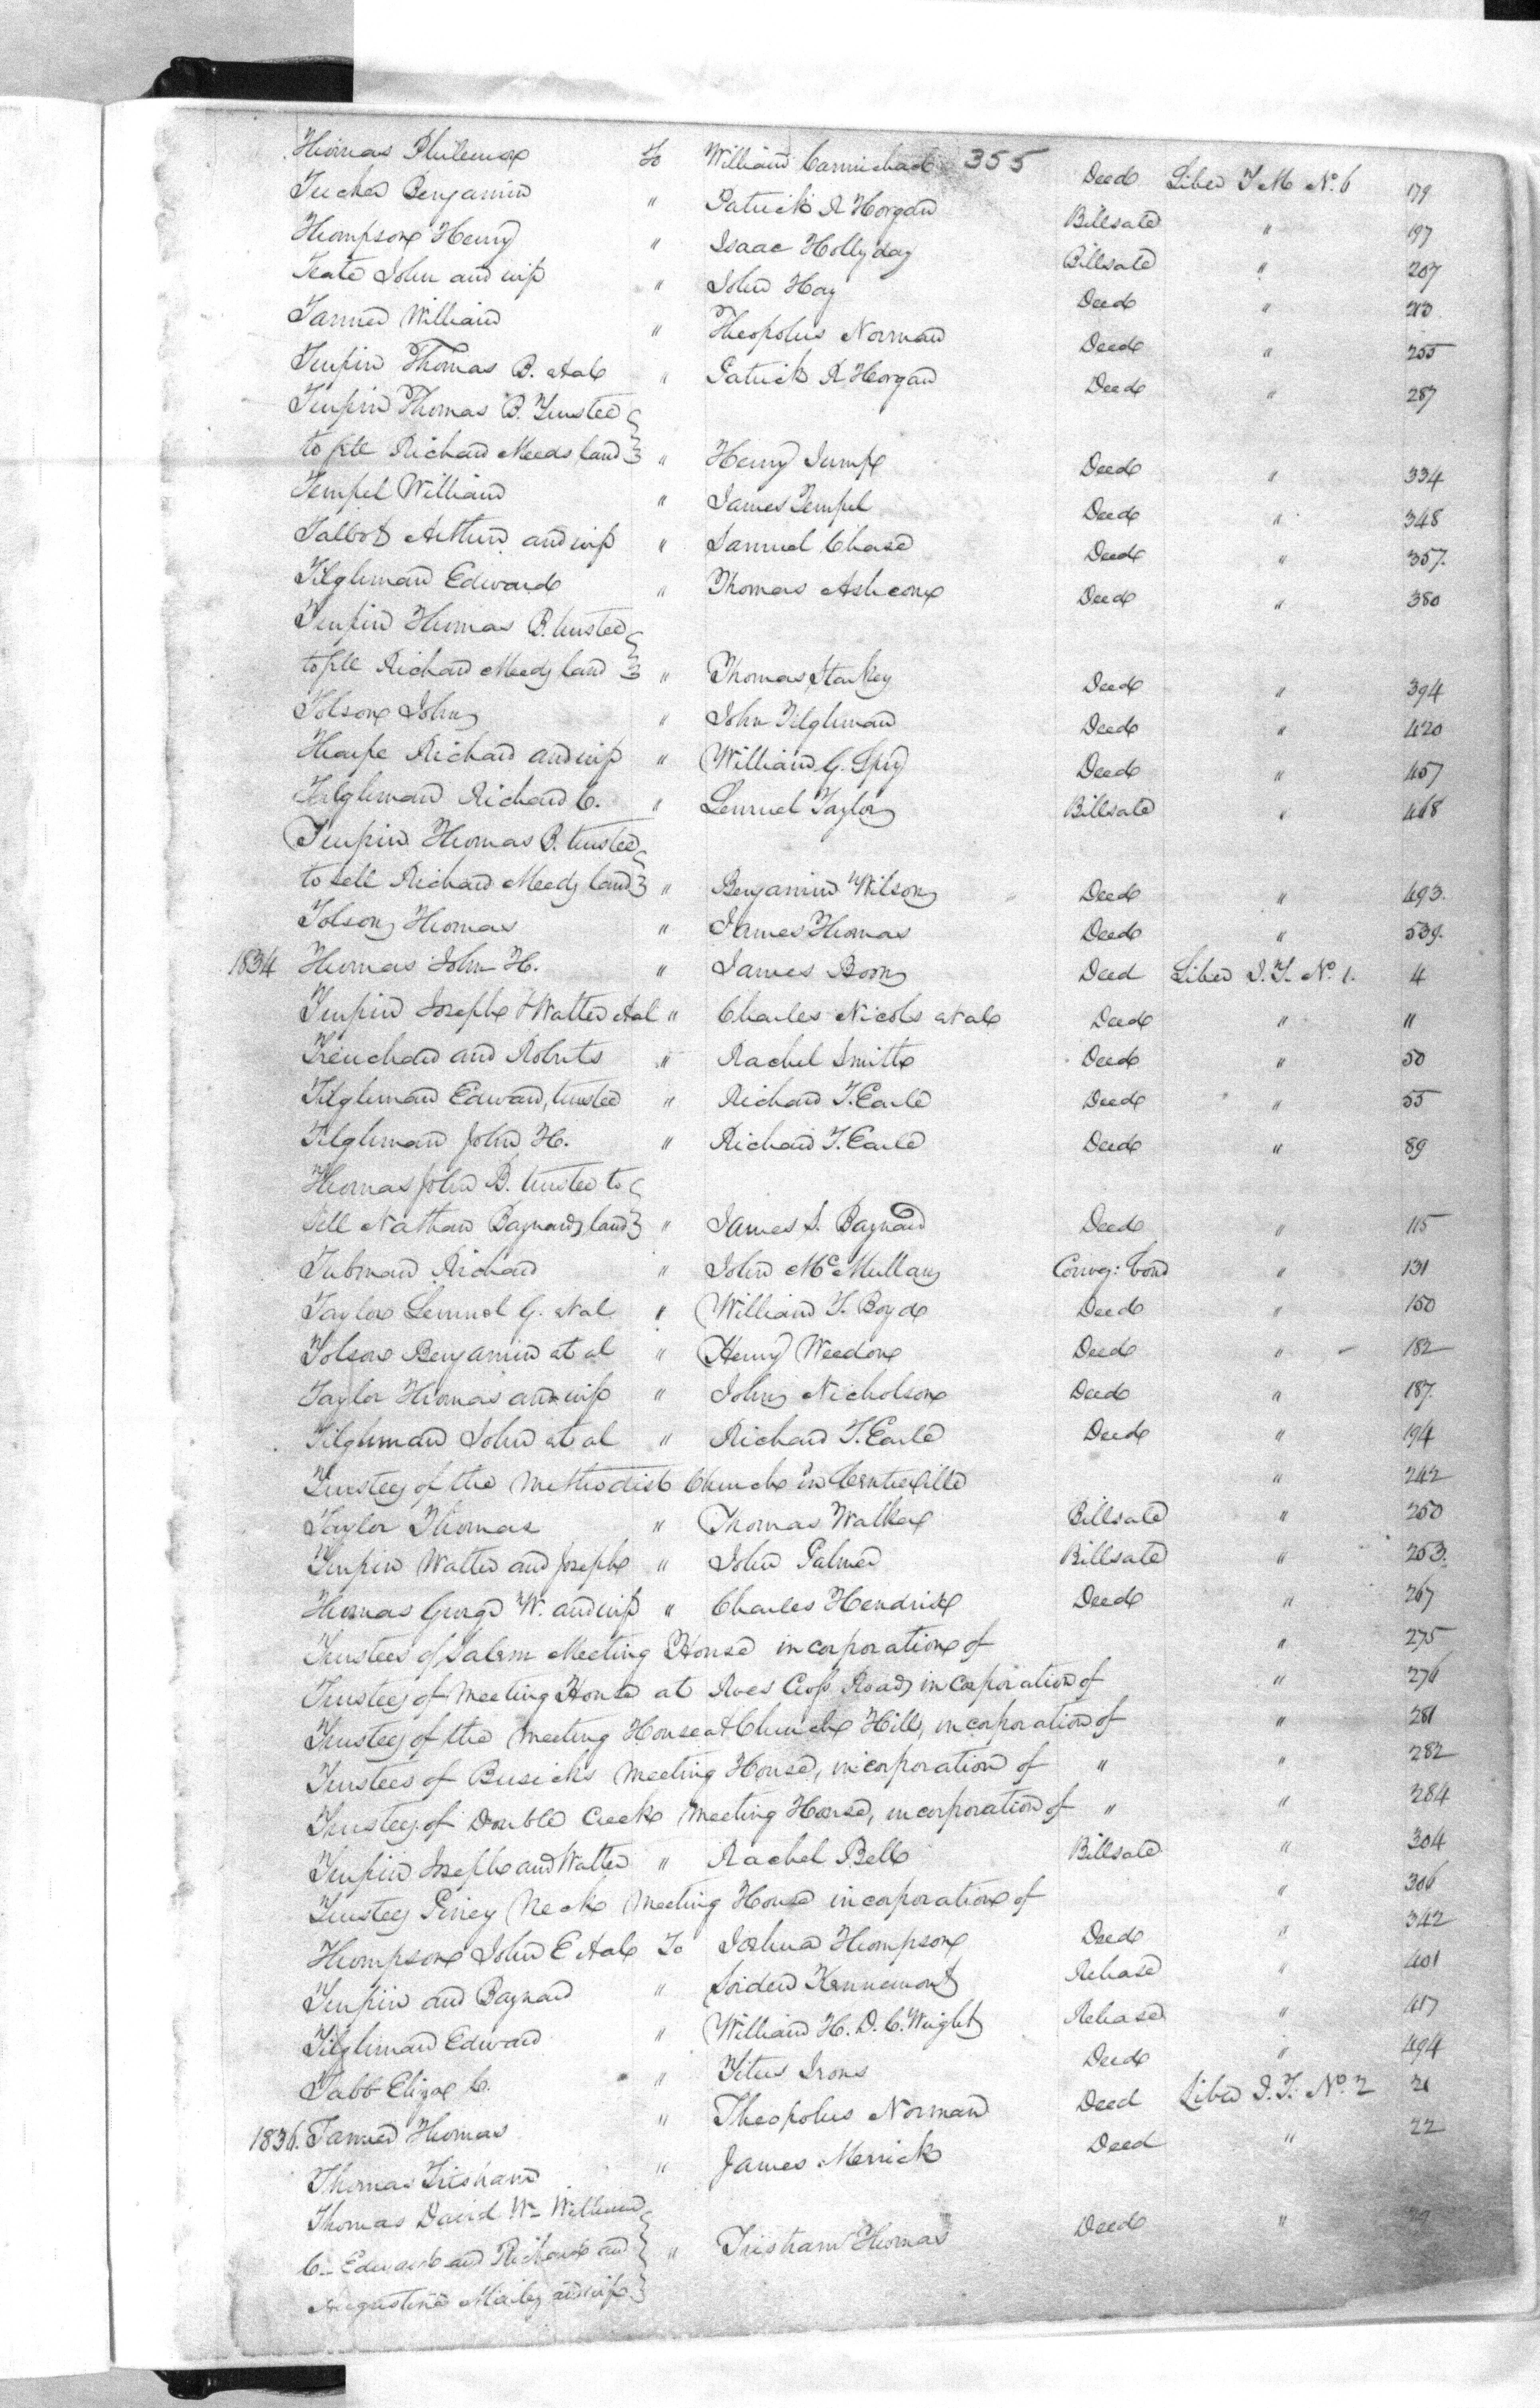 355
Thomas Philemon to William Carmichael Deed Liber T M No. 6 179
Tucker Benjamin " Patrick A Horgan Billsale " 197
Thompson Henry " Isaac Hollyday Billsale " 207
Teate John and wife " John Hay Deed " 213
Tanner William " Theopolus Norman Deed " 255
Turpin Thomas B. et al " Patrick A Horgan Deed " 287
Turpin Thomas B. Trustee
to sell Richard Meeds land " Henry Jump Deed " 334
Tempel William " James Tempel Deed " 348
Talbot Arthur and wife " Samuel Chase Deed " 357
Tilghman Edward " Thomas Ashcom Deed " 380
Turpin Thomas B. trustee
to sell Richard Meeds land " Thomas Starkey Deed " 394
Tolson John " John Tilghman Deed " 420
Tharpe Richard and wife " William G. Spry Deed " 457
Tilghman Richard C. " Lemuel Taylor Billsale " 468
Turpin Thomas B. trustee
to sell Richard Meeds land " Benjamin Wilson Deed " 493.
Tolson Thomas " James Thomas Deed " 539.
1834 Thomas John H. " James Boon Deed Liber I. T. No. 1. 4
Turpin Joseph & Walter et al " Charles Nicols et al Deed " 11
Trenchard and Roberts " Rachel Smith Deed " 50
Tilghman Edward, trustee " Richard T. Earle Deed " 55
Tilghman John H. " Richard T. Earle Deed " 89
Thomas John B. trustee to
sell Nathan Baynards land " James S. Baynard Deed " 115
Tubman Richard " John McMullan Convey: bond " 131
Taylor Lemuel G. et al " William T. Boyd Deed " 150
Tolson Benjamin et al " Henry Weedon Deed " 182
Taylor Thomas and wife " John Nicholson Deed " 187.
Tilghman John et al " Richard T. Earle Deed " 194
Trustees of the Methodist Church in Centreville " 242
Taylor Thomas " Thomas Walker Billsale " 250
Turpin Walter and Joseph " John Palmer Billsale " 253.
Thomas George W. and wife " Charles Hendrix Deed " 267
Trustees of Salem Meeting House incorporation of " 275
Trustees of Meeting House at Roes Cross Roads incorporation of " 276
Trustees of the Meeting House at Church Hill, incorporation of " 281
Trustees of Busicks Meeting House, incorporation of " " 282
Trustees of Double Creek Meeting House, incorporation of " " 284
Turpin Joseph and Walter " Rachel Bell Billsale " 304
Trustees Piney Neck Meeting House incorporation of " 306
Thompson John E et al To Joshua Thompson Deed " 342
Turpin and Baynard " Kennemont Release " 401
Tilghman Edward " William H. D. C. Wright Release " 417
Tabb Eliza C. " Titus Irons Deed " 494
1836. Tanner Thomas " Theopolus Norman Deed Liber I. T. No. 2 21
Thomas Tristram " James Merrick Deed " 22
Thomas David Wm William
C. Edward and Richard and " Tristram Thomas Deed "
Augustine and wife